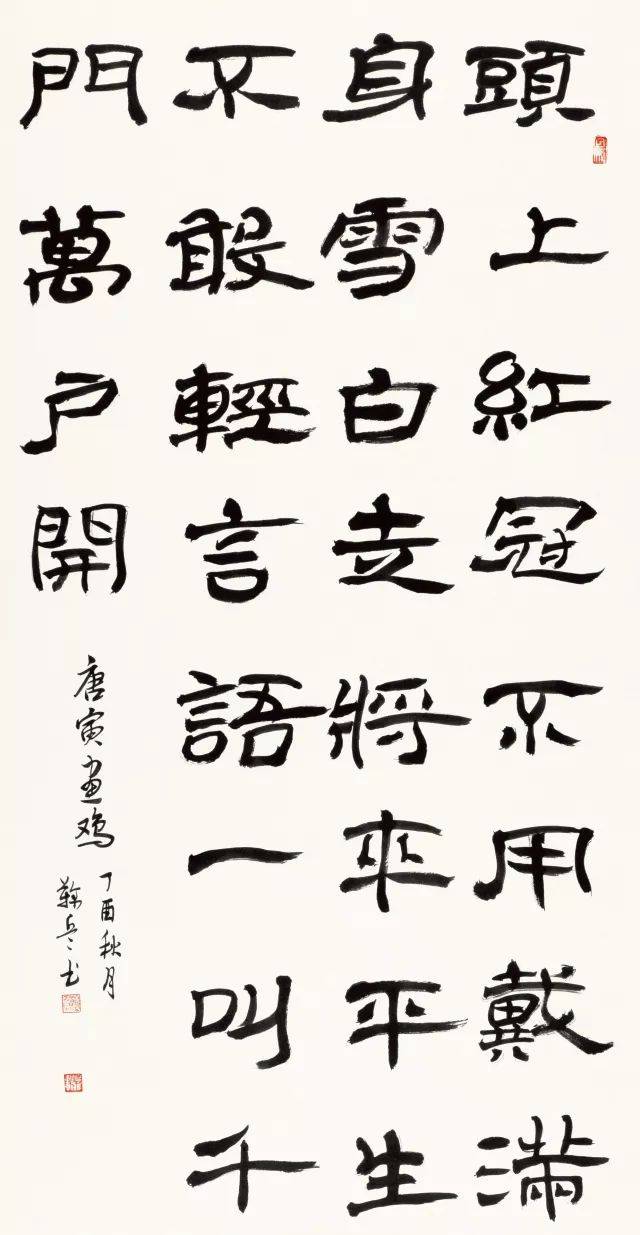 頭上紅冠不用戴滿
身雪白走將來平生
不敢輕言語一叫千
門萬户開
唐寅畫鸡
丁酉秋月
书